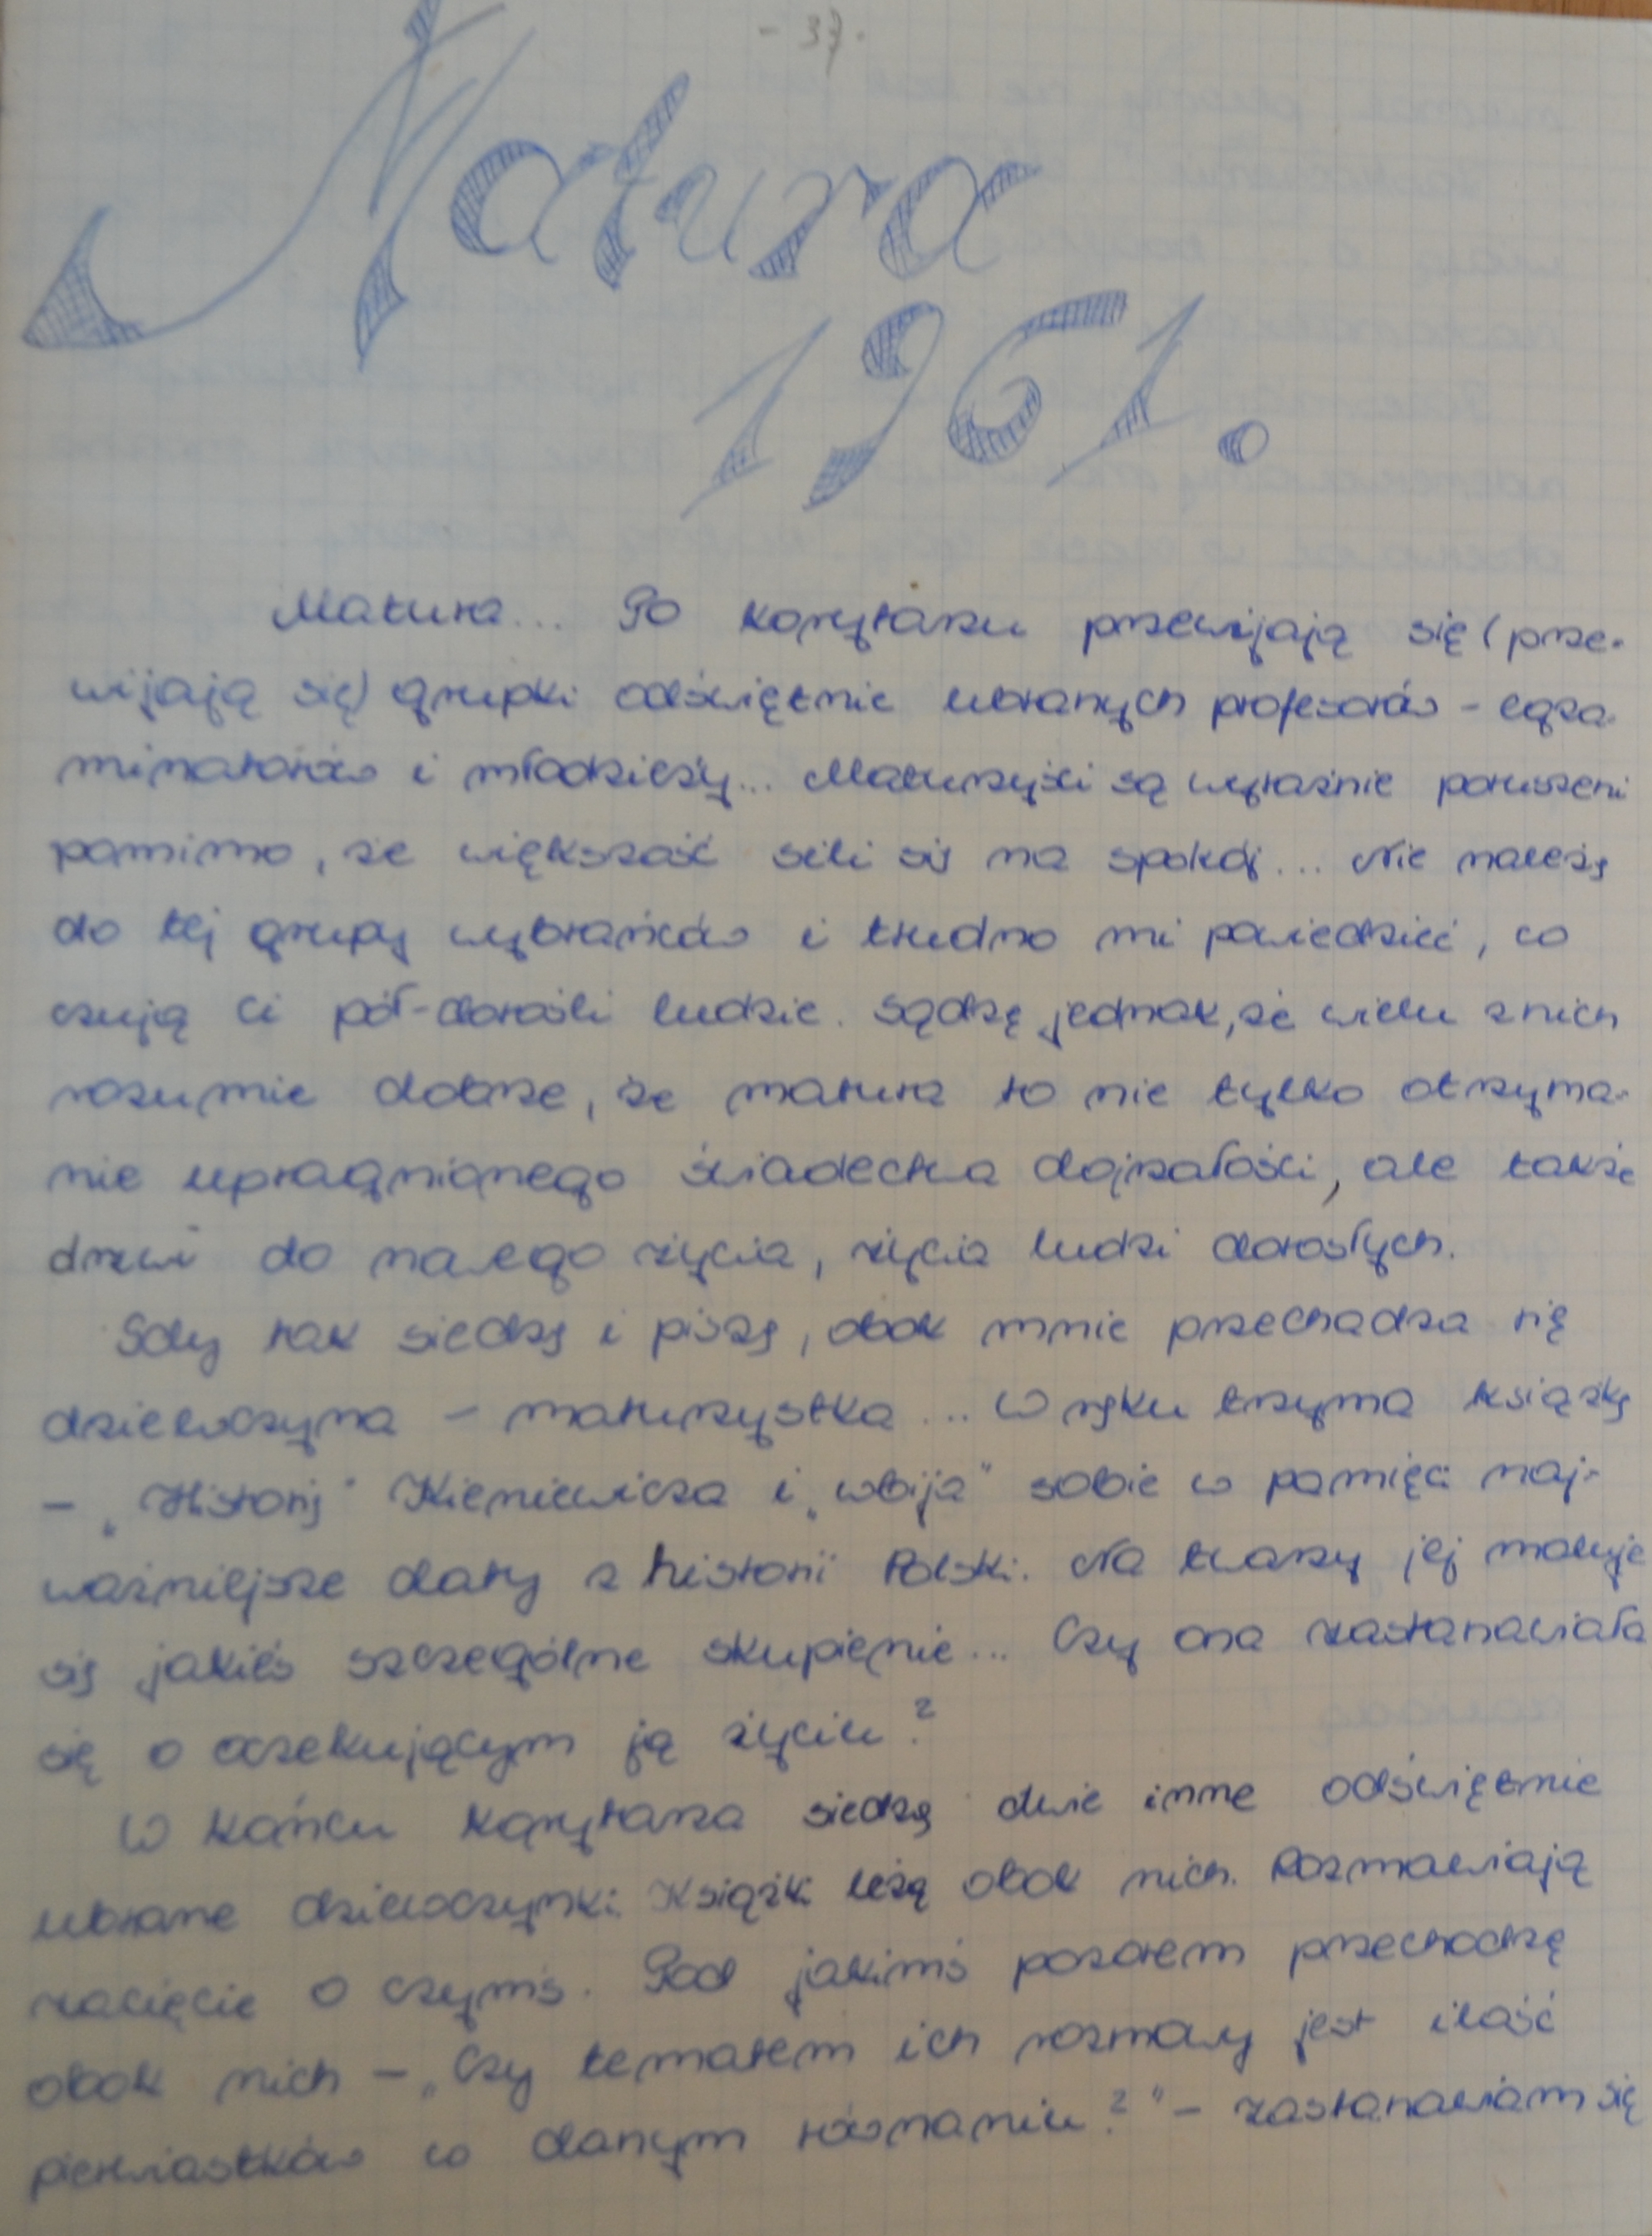 - 37 -
Matura
1961.
Matura... Po korytarzu przewijają się (prze-
wijają się) grupki odświętnie ubranych profesorów - egza-
minatorów i młodzieży... Maturzyści są wyraźnie poruszeni
pomimo, że większość sili się na spokój... Nie należę
do tej grupy wybrańców i trudno mi powiedzieć, co
czują ci pół-dorośli ludzie. Sądzę jednak, że wielu z nich
rozumie dobrze, że matura to nie tylko otrzyma-
nie upragnionego świadectwa dojrzałości, ale także
drzwi do nowego życia, życia ludzi dorosłych.
Gdy tak siedzę i piszę, obok mnie przechadza się
dziewczyna - maturzystka... W ręku trzyma książkę
- „Historię" Kieniewicza i „wbija" sobie w pamięć naj-
ważniejsze daty z historii Polski. Na twarzy jej maluje
się jakieś szczególne skupienie... Czy ona zastanawiała
się o oczekującym ją życiu?
W końcu korytarza siedzą dwie inne odświętnie
ubrane dziewczynki. Książki leżą obok nich. Rozmawiają
zacięcie o czymś. Pod jakimś pozorem przechodzę
obok nich - „Czy tematem ich rozmowy jest ilość
pierwiastków w danym równaniu?" - zastanawiam się